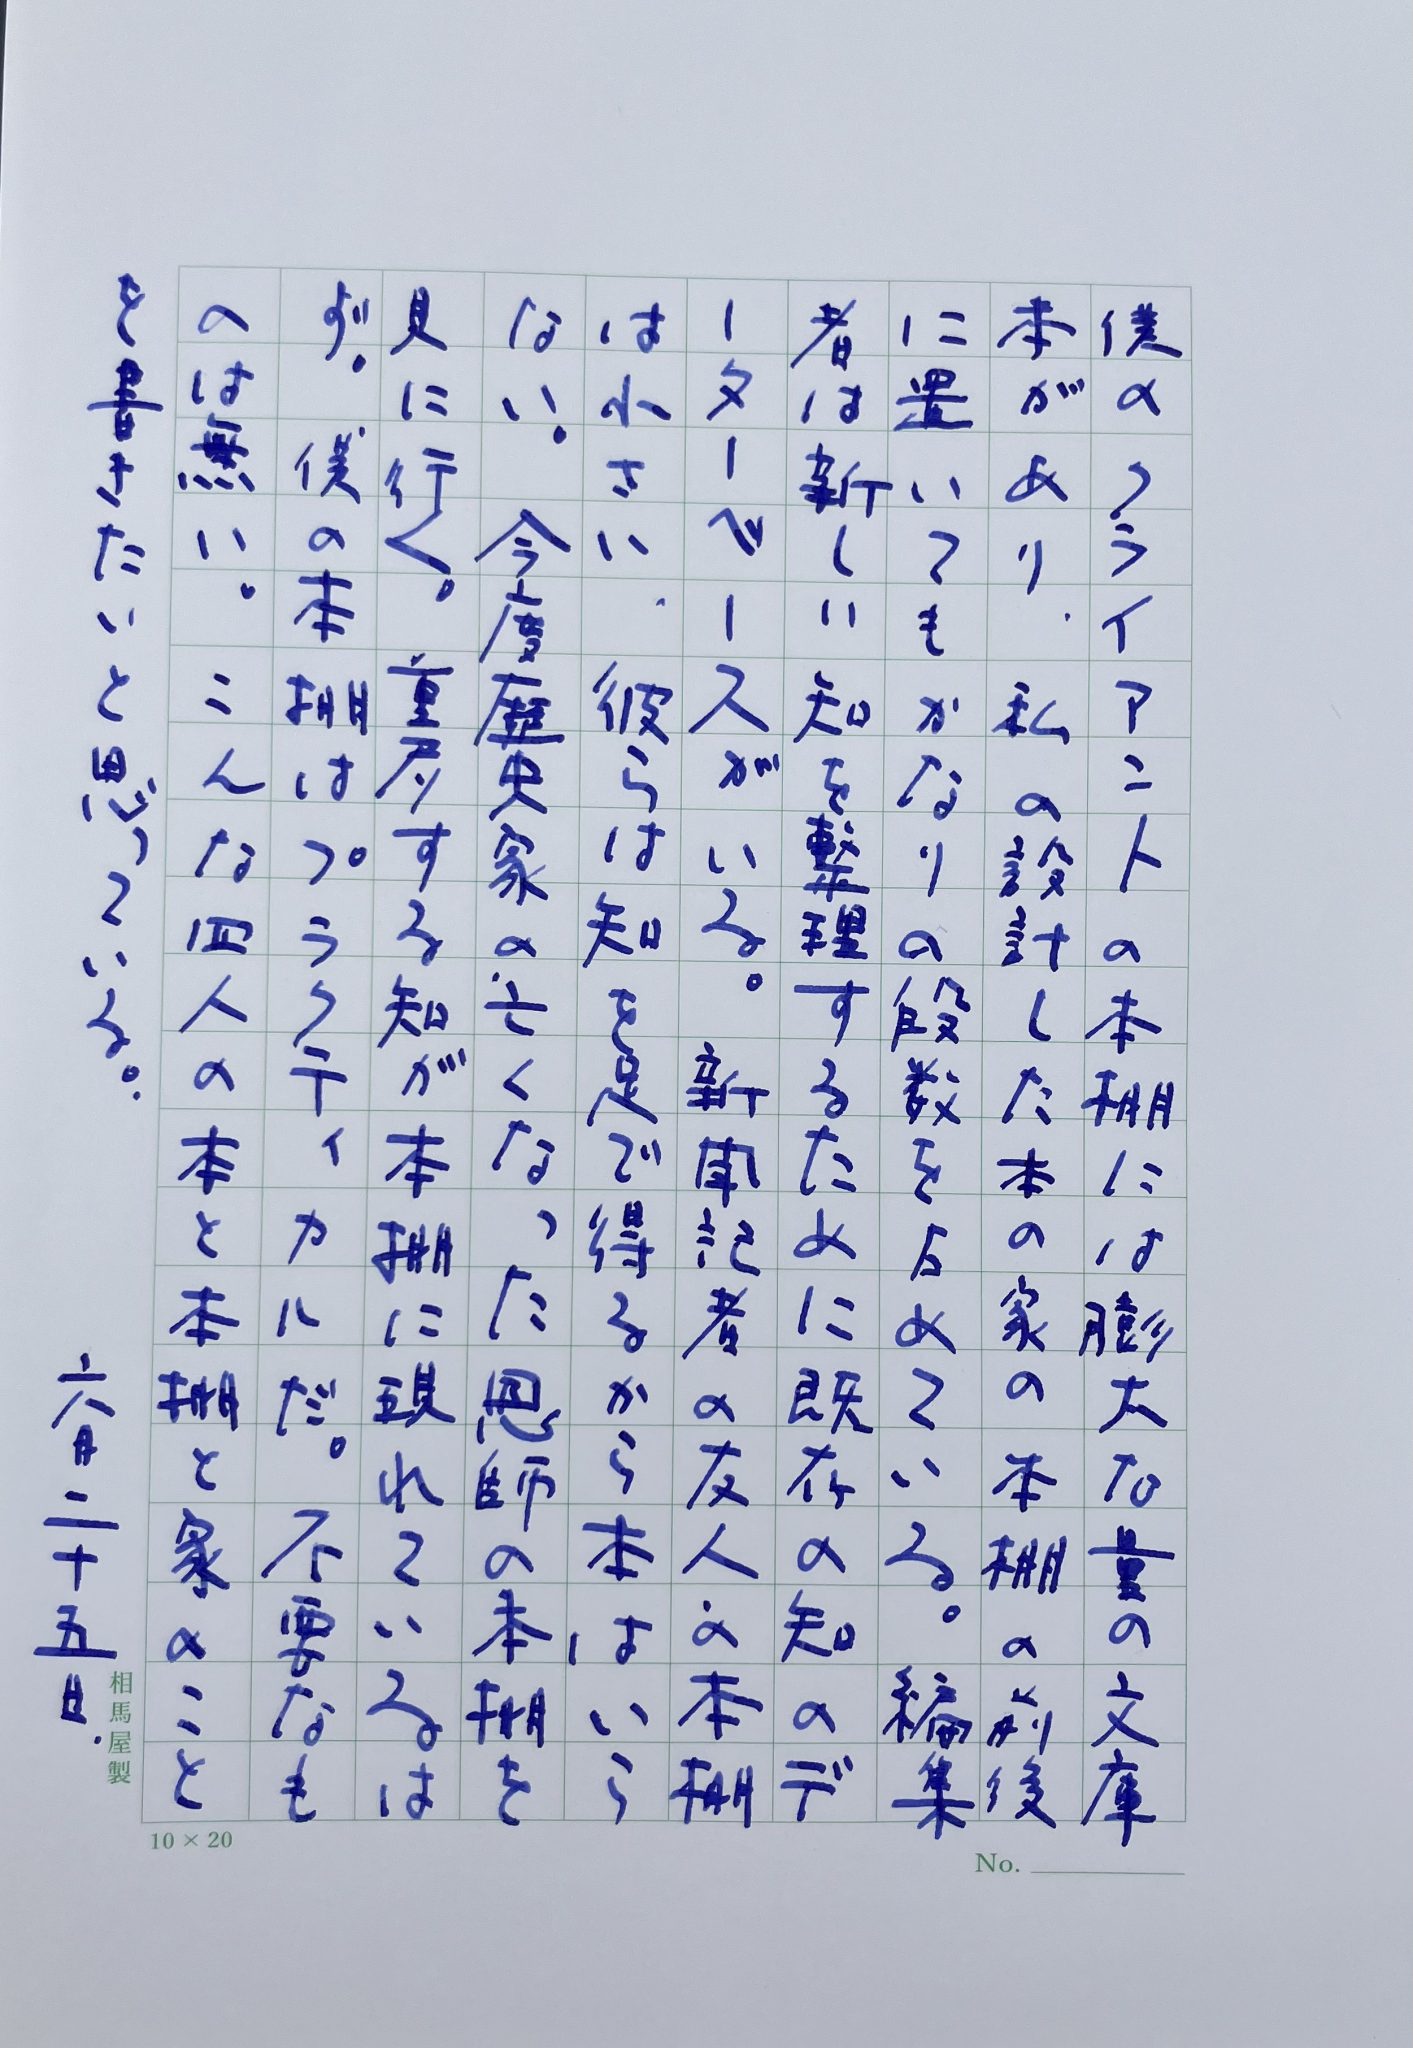 僕のクライアントの本棚には膨大な量の文庫
本があり、私の設計した本の家の本棚の前後
に置いてもかなりの段数を占めている。編集
者は新しい知を整理するために既存の知のデ
ーターベースがいる。新聞記者の友人の本棚
は小さい、彼らは知を足で得るから本はいら
ない。今度歴史家の亡くなった恩師の本棚を
見に行く。重層する知が本棚に現れているは
ず。僕の本棚はプラクティカルだ。不要なも
のは無い。こんな四人の本と本棚と家のこと
を書きたいと思っている。
六月二十五日.
相馬屋製
10×20
No.